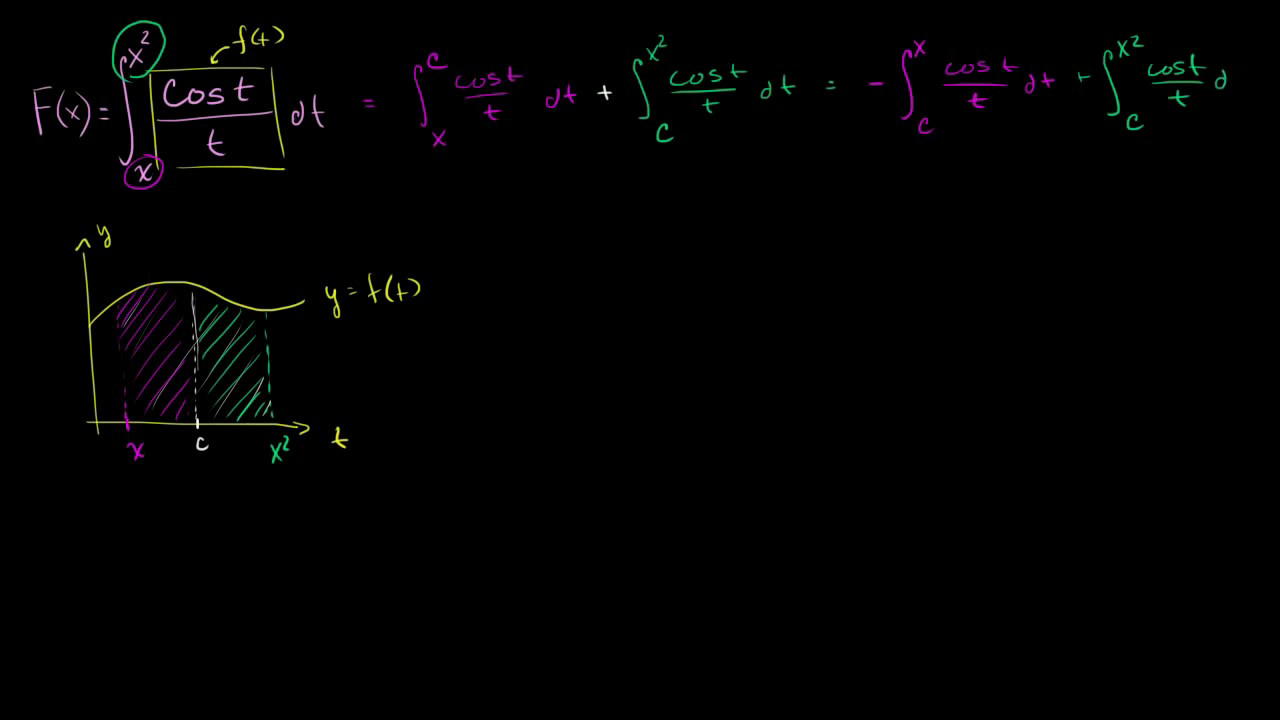 f(t)
F(x) = ∫ₓ^x² cos t / t dt = ∫ₓ^c cos t / t dt + ∫_c^x² cos t / t dt = - ∫_c^x cos t / t dt + ∫_c^x² cos t / t d
y
y = f(t)
t
x c x²